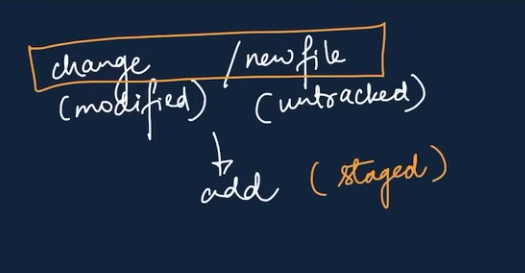 change / new file
(modified) (untracked)
add (staged)